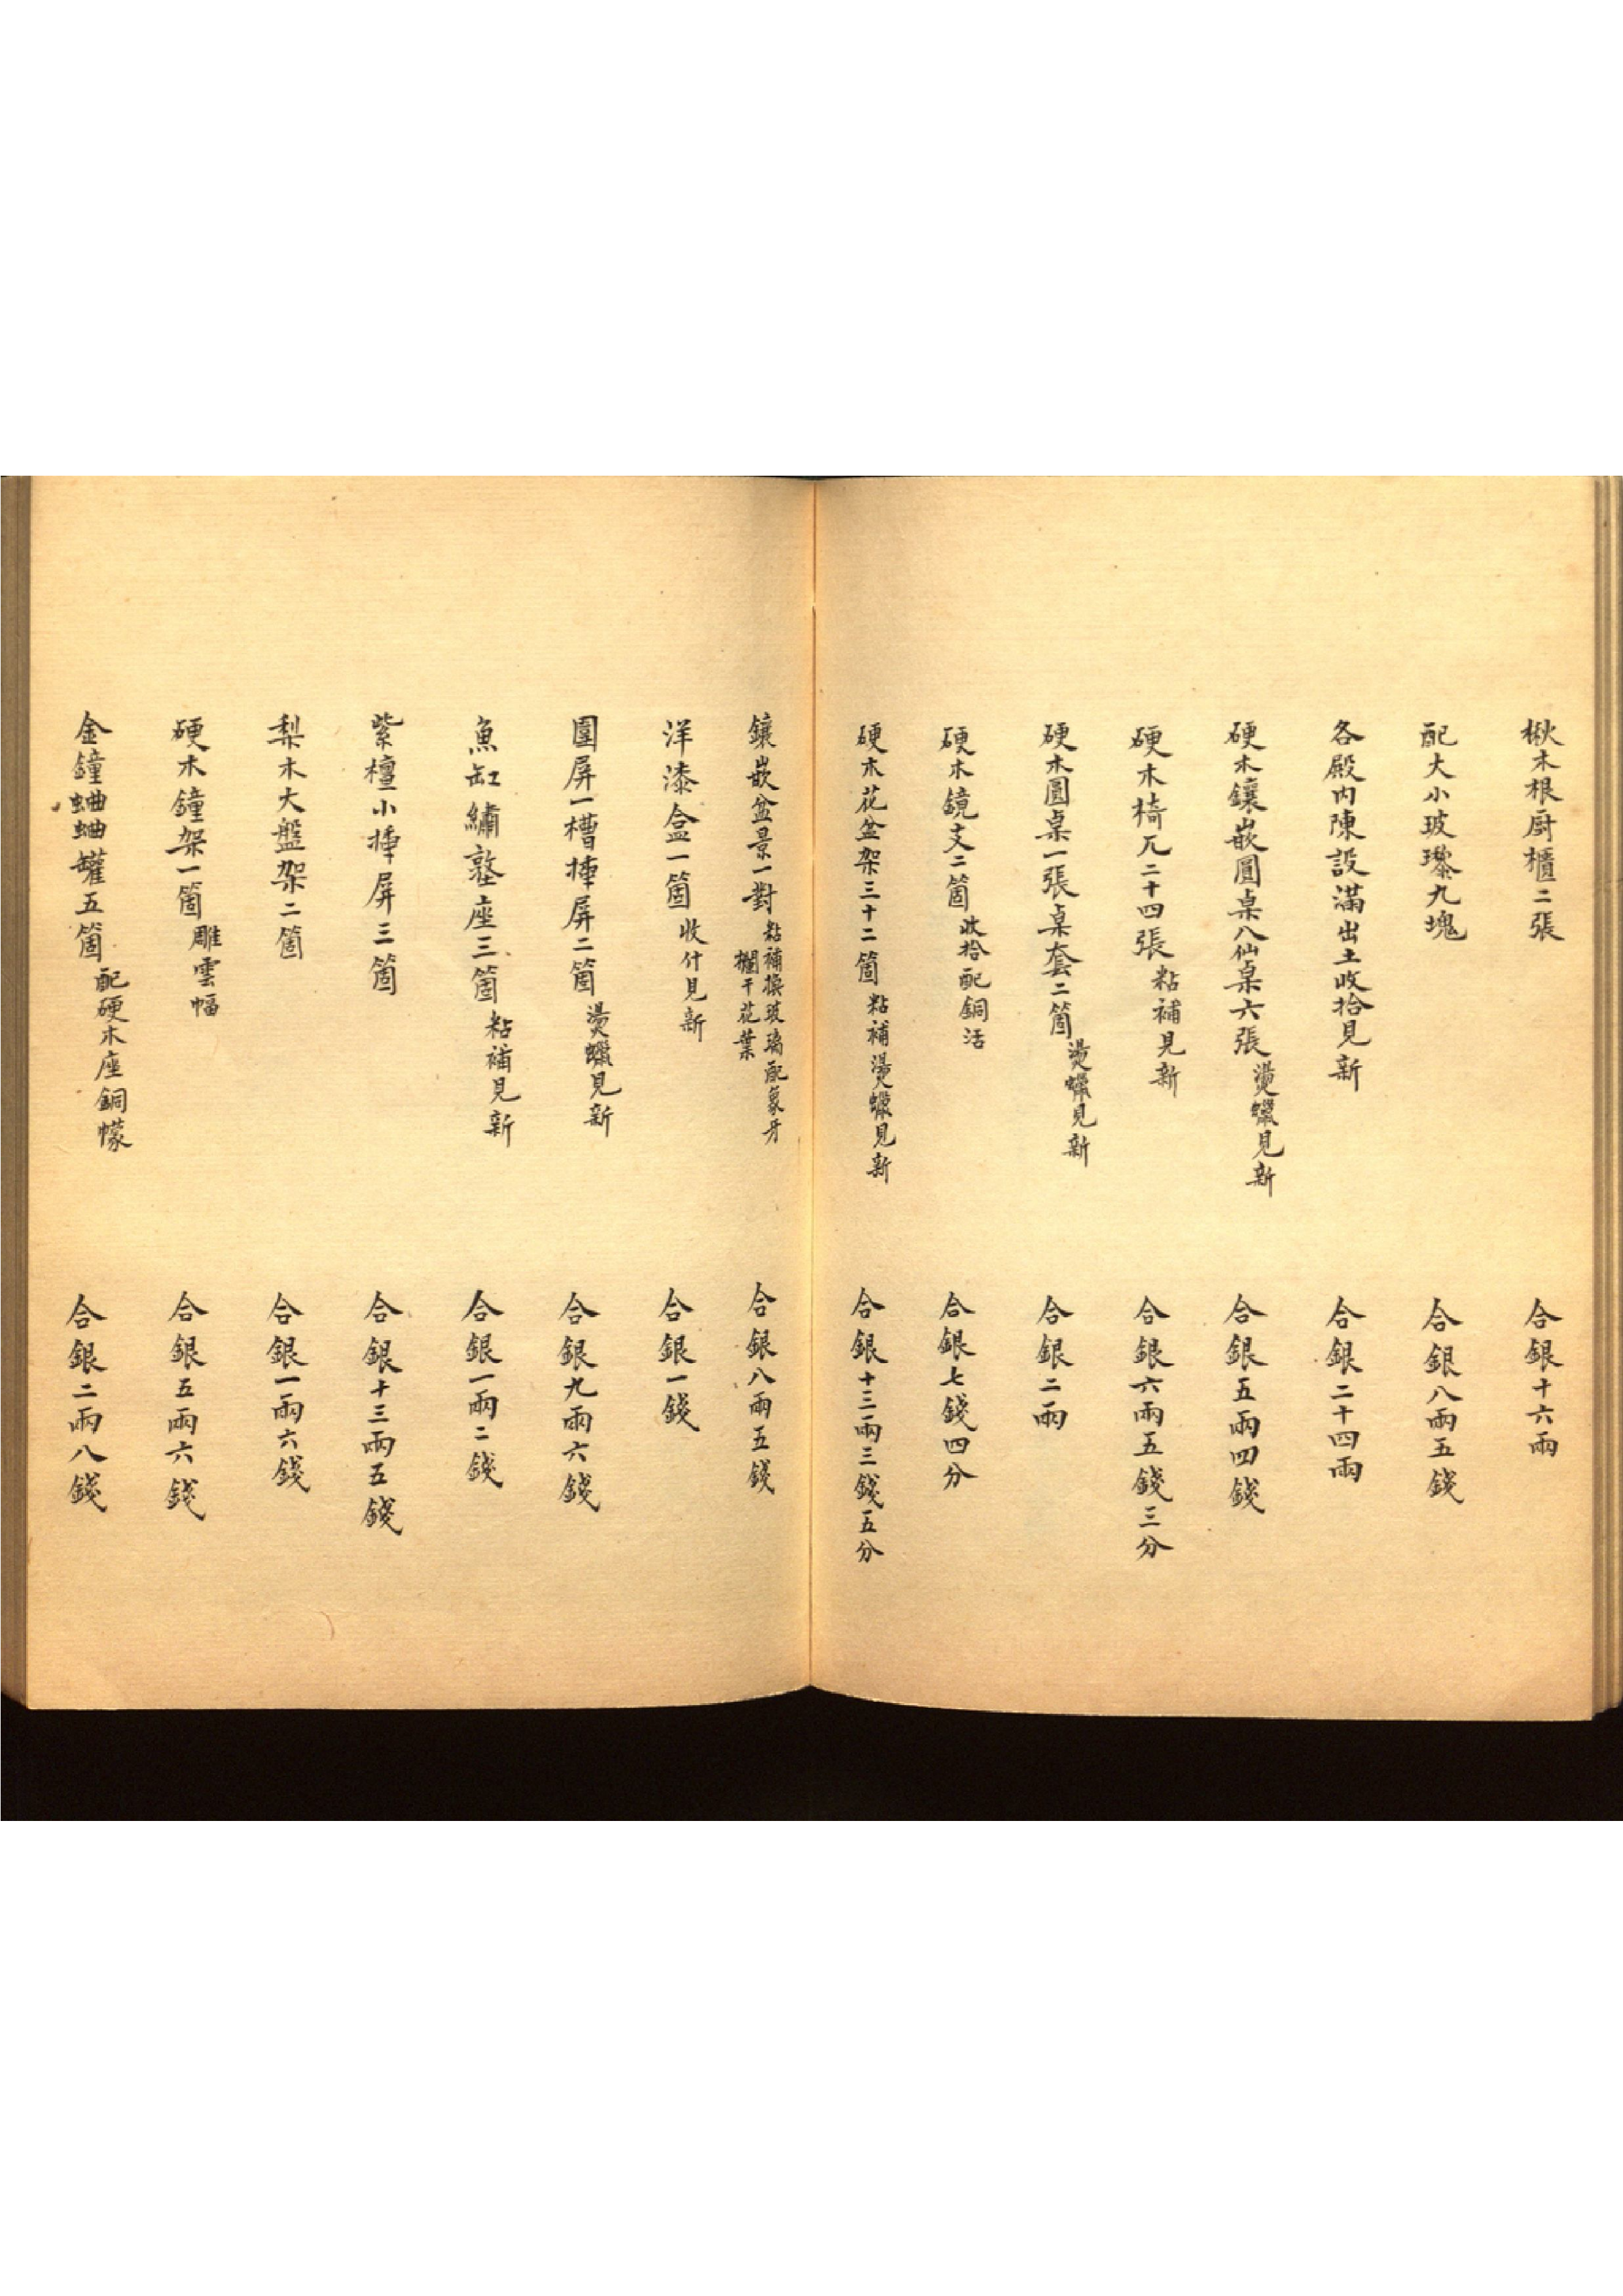 楸木根厨櫃二張　合銀十六兩
配大小玻瓈九塊　合銀八兩五錢
各殿内陳設滿出土收拾見新　合銀二十四兩
硬木鑲嵌圓桌八仙桌六張燙蠟見新　合銀五兩四錢
硬木椅兀二十四張粘補見新　合銀六兩五錢三分
硬木圓桌一張桌套二箇燙蠟見新　合銀二兩
硬木鏡支二箇收拾配銅活　合銀七錢四分
硬木花盆架三十二箇粘補燙蠟見新　合銀十三兩三錢五分
鑲嵌盆景一對粘補換玻璃配象牙欄干花葉　合銀八兩五錢
洋漆盒一箇收什見新　合銀一錢
圍屏一槽揷屏二箇燙蠟見新　合銀九兩六錢
魚缸繡墪座三箇粘補見新　合銀一兩二錢
紫檀小揷屏三箇　合銀十三兩五錢
梨木大盤架二箇　合銀一兩六錢
硬木鐘架一箇雕雲幅　合銀五兩六錢
金鐘蛐蛐罐五箇配硬木座銅幪　合銀二兩八錢